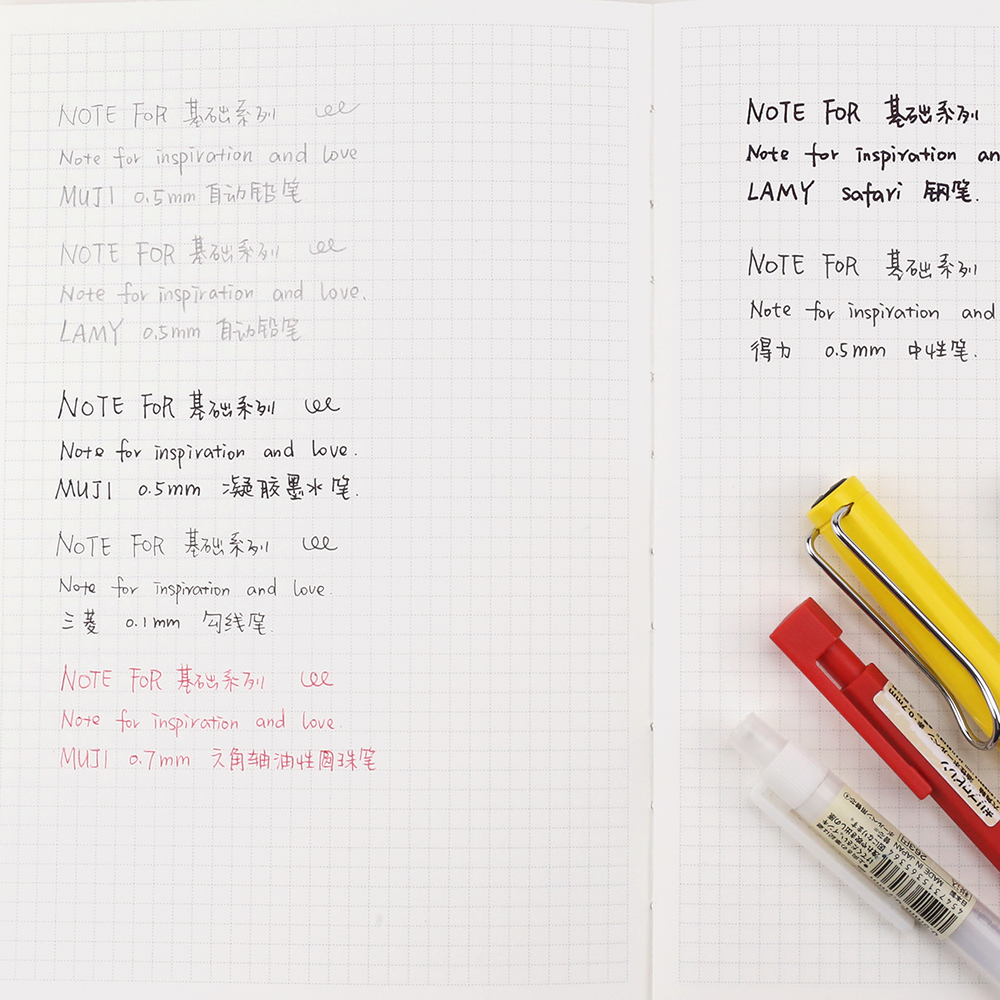 NOTE FOR 基础系列
Note for inspiration and love
MUJI 0.5mm 自动铅笔
NOTE FOR 基础系列
Note for inspiration and love.
LAMY 0.5mm 自动铅笔
NOTE FOR 基础系列
Note for inspiration and love.
MUJI 0.5mm 凝胶墨水笔.
NOTE FOR 基础系列
Note for inspiration and love.
三菱 0.1mm 勾线笔.
NOTE FOR 基础系列
Note for inspiration and love.
MUJI 0.7mm 六角轴油性圆珠笔
NOTE FOR 基础系列
Note for inspiration an
LAMY safari 钢笔.
NOTE FOR 基础系列
Note for inspiration and
得力 0.5mm 中性笔.
0.7mm
MADE IN JAPAN
4547315365364